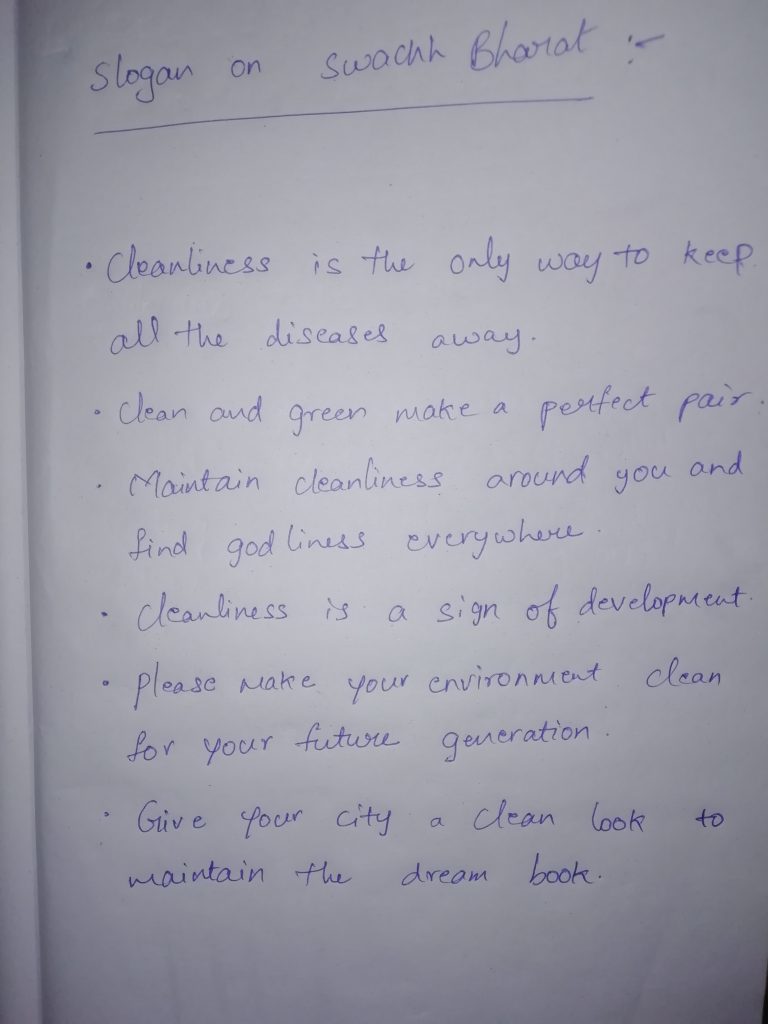 Slogan on Swachh Bharat :-
• Cleanliness is the only way to keep
all the diseases away.
• Clean and green make a perfect pair.
• Maintain cleanliness around you and
find godliness everywhere.
• Cleanliness is a sign of development.
• Please make your environment clean
for your future generation.
• Give your city a clean look to
maintain the dream book.